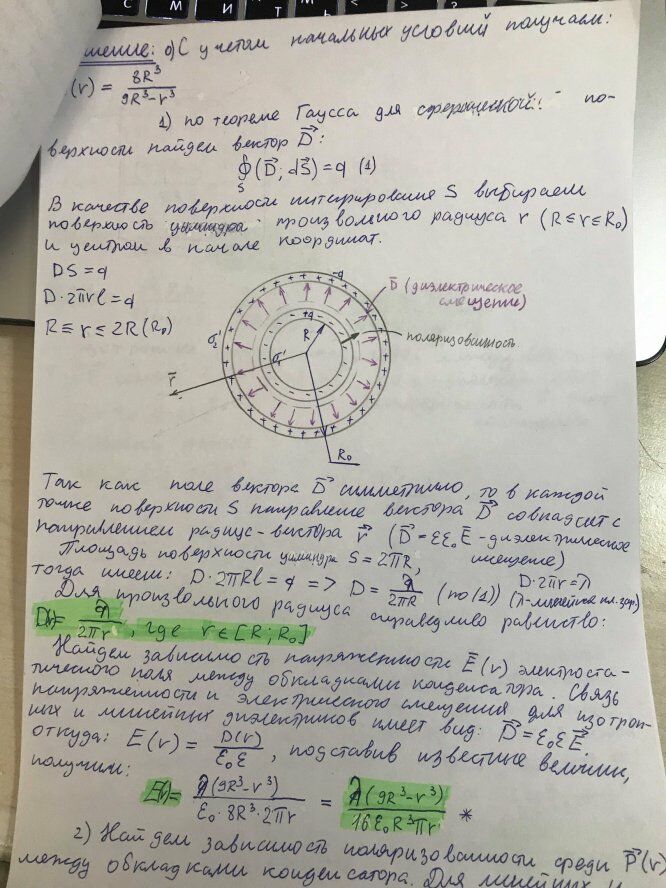 шение: 0) С учетом начальных условий получаем:
(r) = 8R³ / 9R³-r³
1) по теореме Гаусса для по-
верхности найдем вектор D⃗:
∮ₛ (D⃗; dS⃗) = q (1)
В качестве поверхности интегрирования S выбираем
поверхность цилиндра произвольного радиуса r (R≤r≤R₀)
и центром в начале координат.
DS = q
D·2πrl = q
R ≤ r ≤ 2R (R₀)
-q
D⃗ (диэлектрическое
смещение)
+q
R
поляризованность
σ₂'
σ₁'
r⃗
R₀
Так как поле вектора D⃗ симметрично, то в каждой
точке поверхности S направление вектора D⃗ совпадает с
направлением радиус-вектора r⃗ (D⃗ = εε₀E⃗ - диэлектрическое
смещение)
Площадь поверхности цилиндра S = 2πR,
D·2πr = λ
тогда имеем: D·2πRl = q => D = λ / 2πR (по(1)) (λ-линейная пл. зар)
Для произвольного радиуса справедливо равенство:
D(r)= λ / 2πr, где r ∈ [R; R₀]
Найдем зависимость напряженности E⃗(r) электроста-
тического поля между обкладками конденсатора. Связь
напряженности и электрического смещения для изотроп-
ных и линейных диэлектриков имеет вид: D⃗ = ε₀εE⃗,
откуда: E(r) = D(r) / ε₀ε, подставив известные величин,
получим:
E(r)= λ(9R³-r³) / ε₀·8R³·2πr = λ(9R³-r³) / 16ε₀R³πr *
2) Найдем зависимость поляризованности среды P⃗(r)
между обкладками конденсатора. Для линейных и